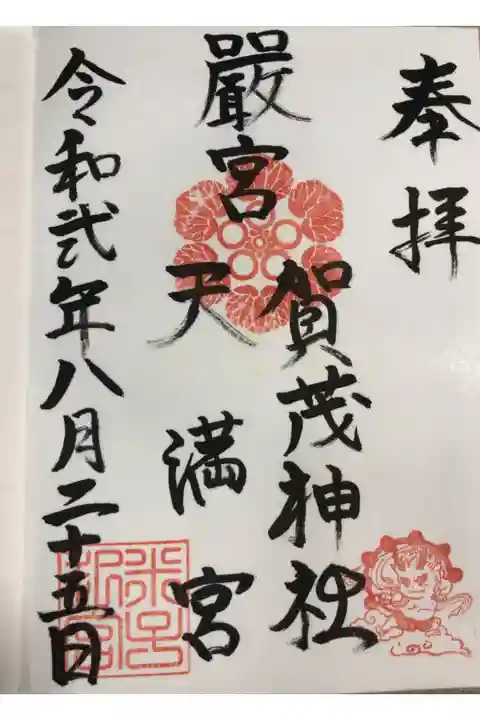 奉拝
嚴宮
賀茂神社
天満宮
令和弐年八月二十五日